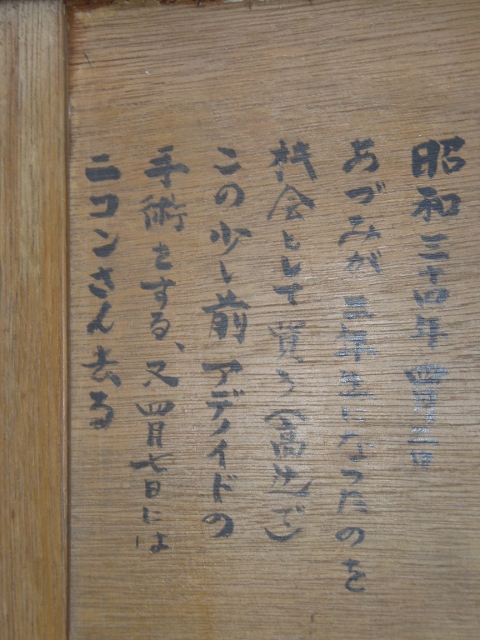 昭和三十四年四月三日
あづみが三年生になったのを
機会として買う（高辻で）
この少し前アデノイドの
手術をする、又四月七日には
ニコンさん去る